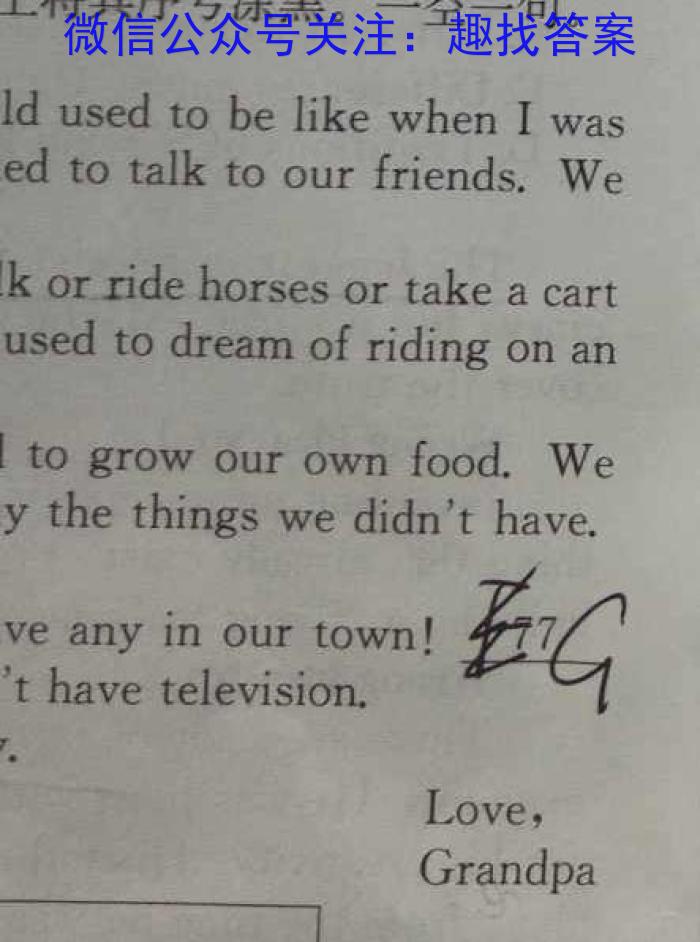 上将其序号涂黑。一空一词。
微信公众号关注：趣找答案
ld used to be like when I was
ed to talk to our friends. We
lk or ride horses or take a cart
used to dream of riding on an
to grow our own food. We
y the things we didn't have.
ve any in our town! 77 G
't have television.
Love,
Grandpa